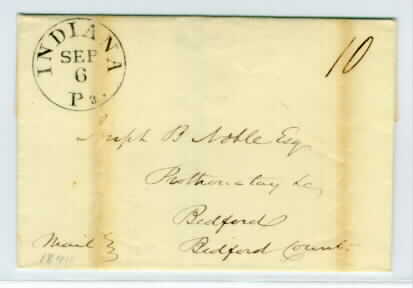 INDIANA
SEP
6
Pa.
10
Joseph B Noble Esq
Prothonotary &c
Bedford
Bedford County
Mail